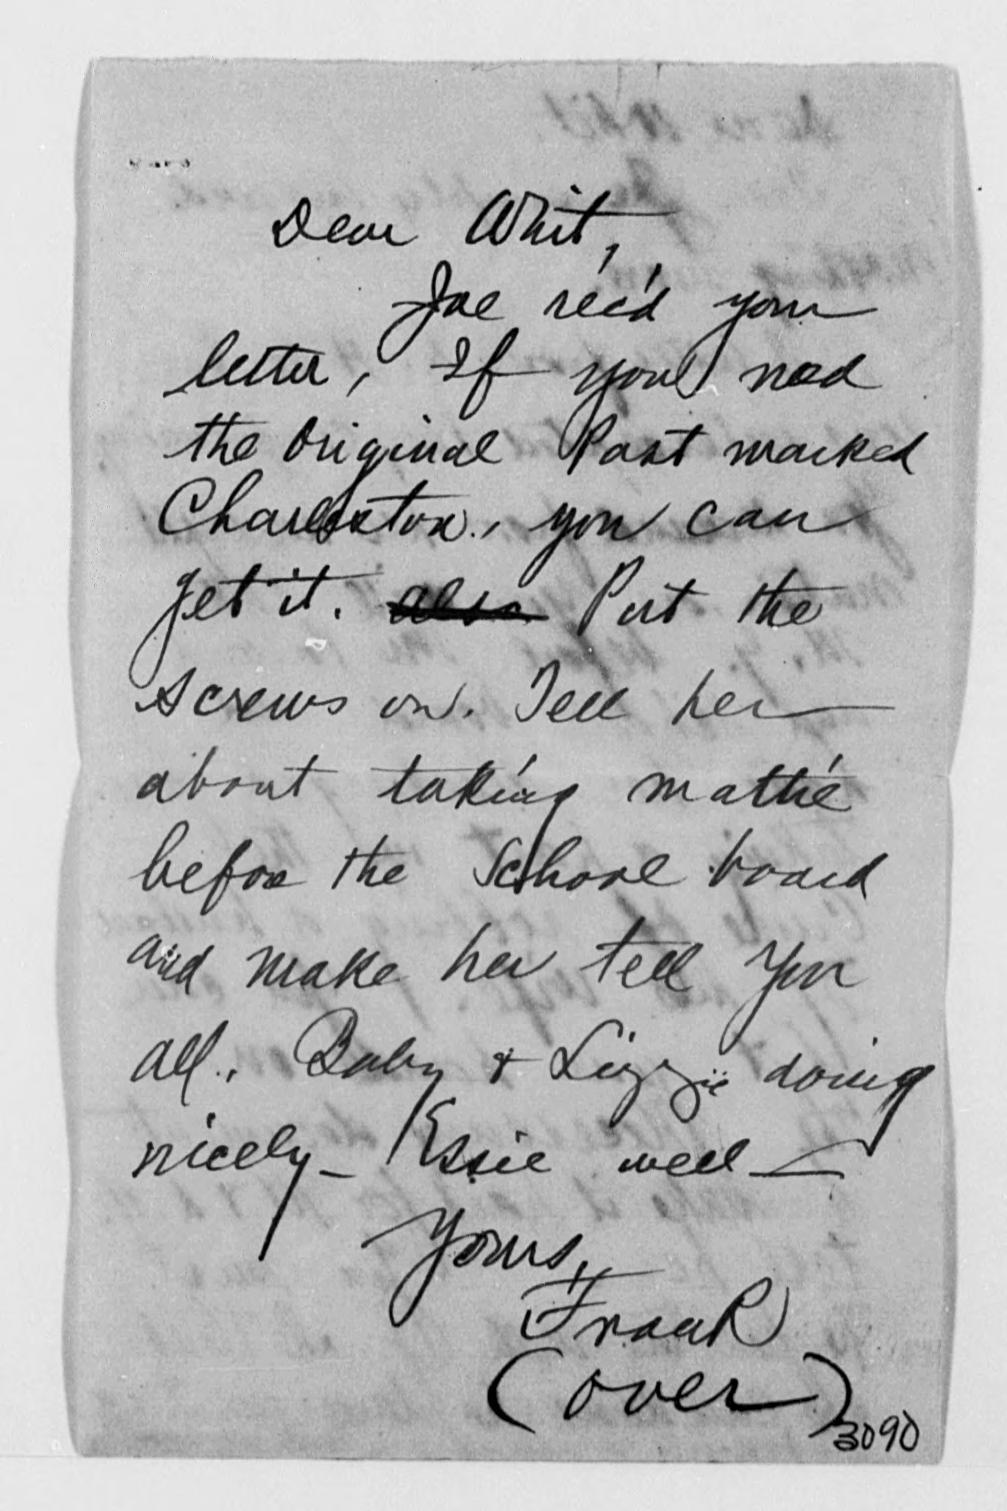 Dear Whit,
Joe rec'd your
letter, If you need
the original Post marked
Charleston, you can
get it. also Put the
screws on. Tell her
about taking Mattie
before the School board
and make her tell you
all. Baby & Lizzie doing
nicely - Essie well -
Yours,
Frank
(over)
3090